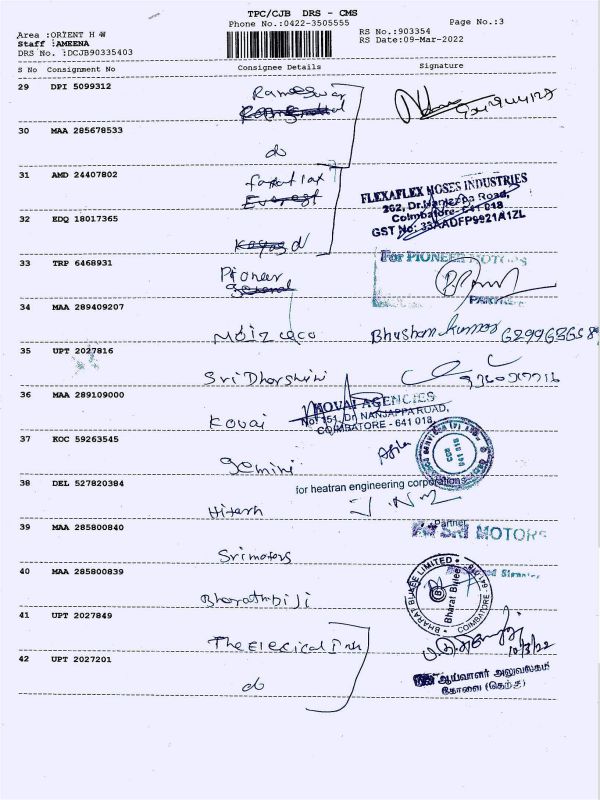 TPC/CJB DRS - CMS
Phone No.:0422-3505555
Page No.:3
Area :ORIENT H W
RS No.:903354
Staff :AMEENA
RS Date:09-Mar-2022
DRS No. :DCJB90335403
S No Consignment No Consignee Details Signature
29 DPI 5099312
Rameswar
30 MAA 285678533
do
31 AMD 24407802
FLEXAFLEX HOSES INDUSTRIES
262, Dr.Nanjappa Road,
Everest
Coimbatore - 641 018
32 EDQ 18017365
GST No: 33AADFP9921A1ZL
d
33 TRP 6468931
For PIONEER MOTORS
Pioneer
General
PARTNER
34 MAA 289409207
Moiz & co Bhushan Kumar
35 UPT 2027816
Sri Dharshini
36 MAA 289109000
KOVAI AGENCIES
No. 151, Dr. NANJAPPA ROAD,
Kovai COIMBATORE - 641 018.
37 KOC 59263545
Gemini
38 DEL 527820384
for heatran engineering corporation
Hitesh
Partner
39 MAA 285800840
Sri MOTORS
Srimotors
40 MAA 285800839
BHARAT BIJLEE LIMITED
Bharat Bijlee
COIMBATORE - 641 018
Bharathbiji
41 UPT 2027849
The Elecical Ink
10/3/22
42 UPT 2027201
do
ஆய்வாளர் அலுவலகம்
கோவை (தெற்கு)